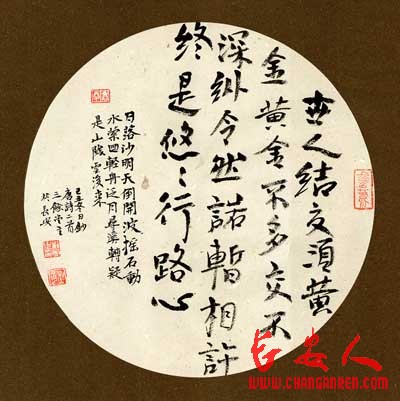 世人结交须黄
金黄金不多交不
深纵令然諾暫相許
终是悠〻行路心
日落沙明天倒開波摇石動
水縈回輕舟泛月尋溪轉疑
是山陰雪後來
唐詩二首
於長安
长安人
WWW.CHANGANREN.COM